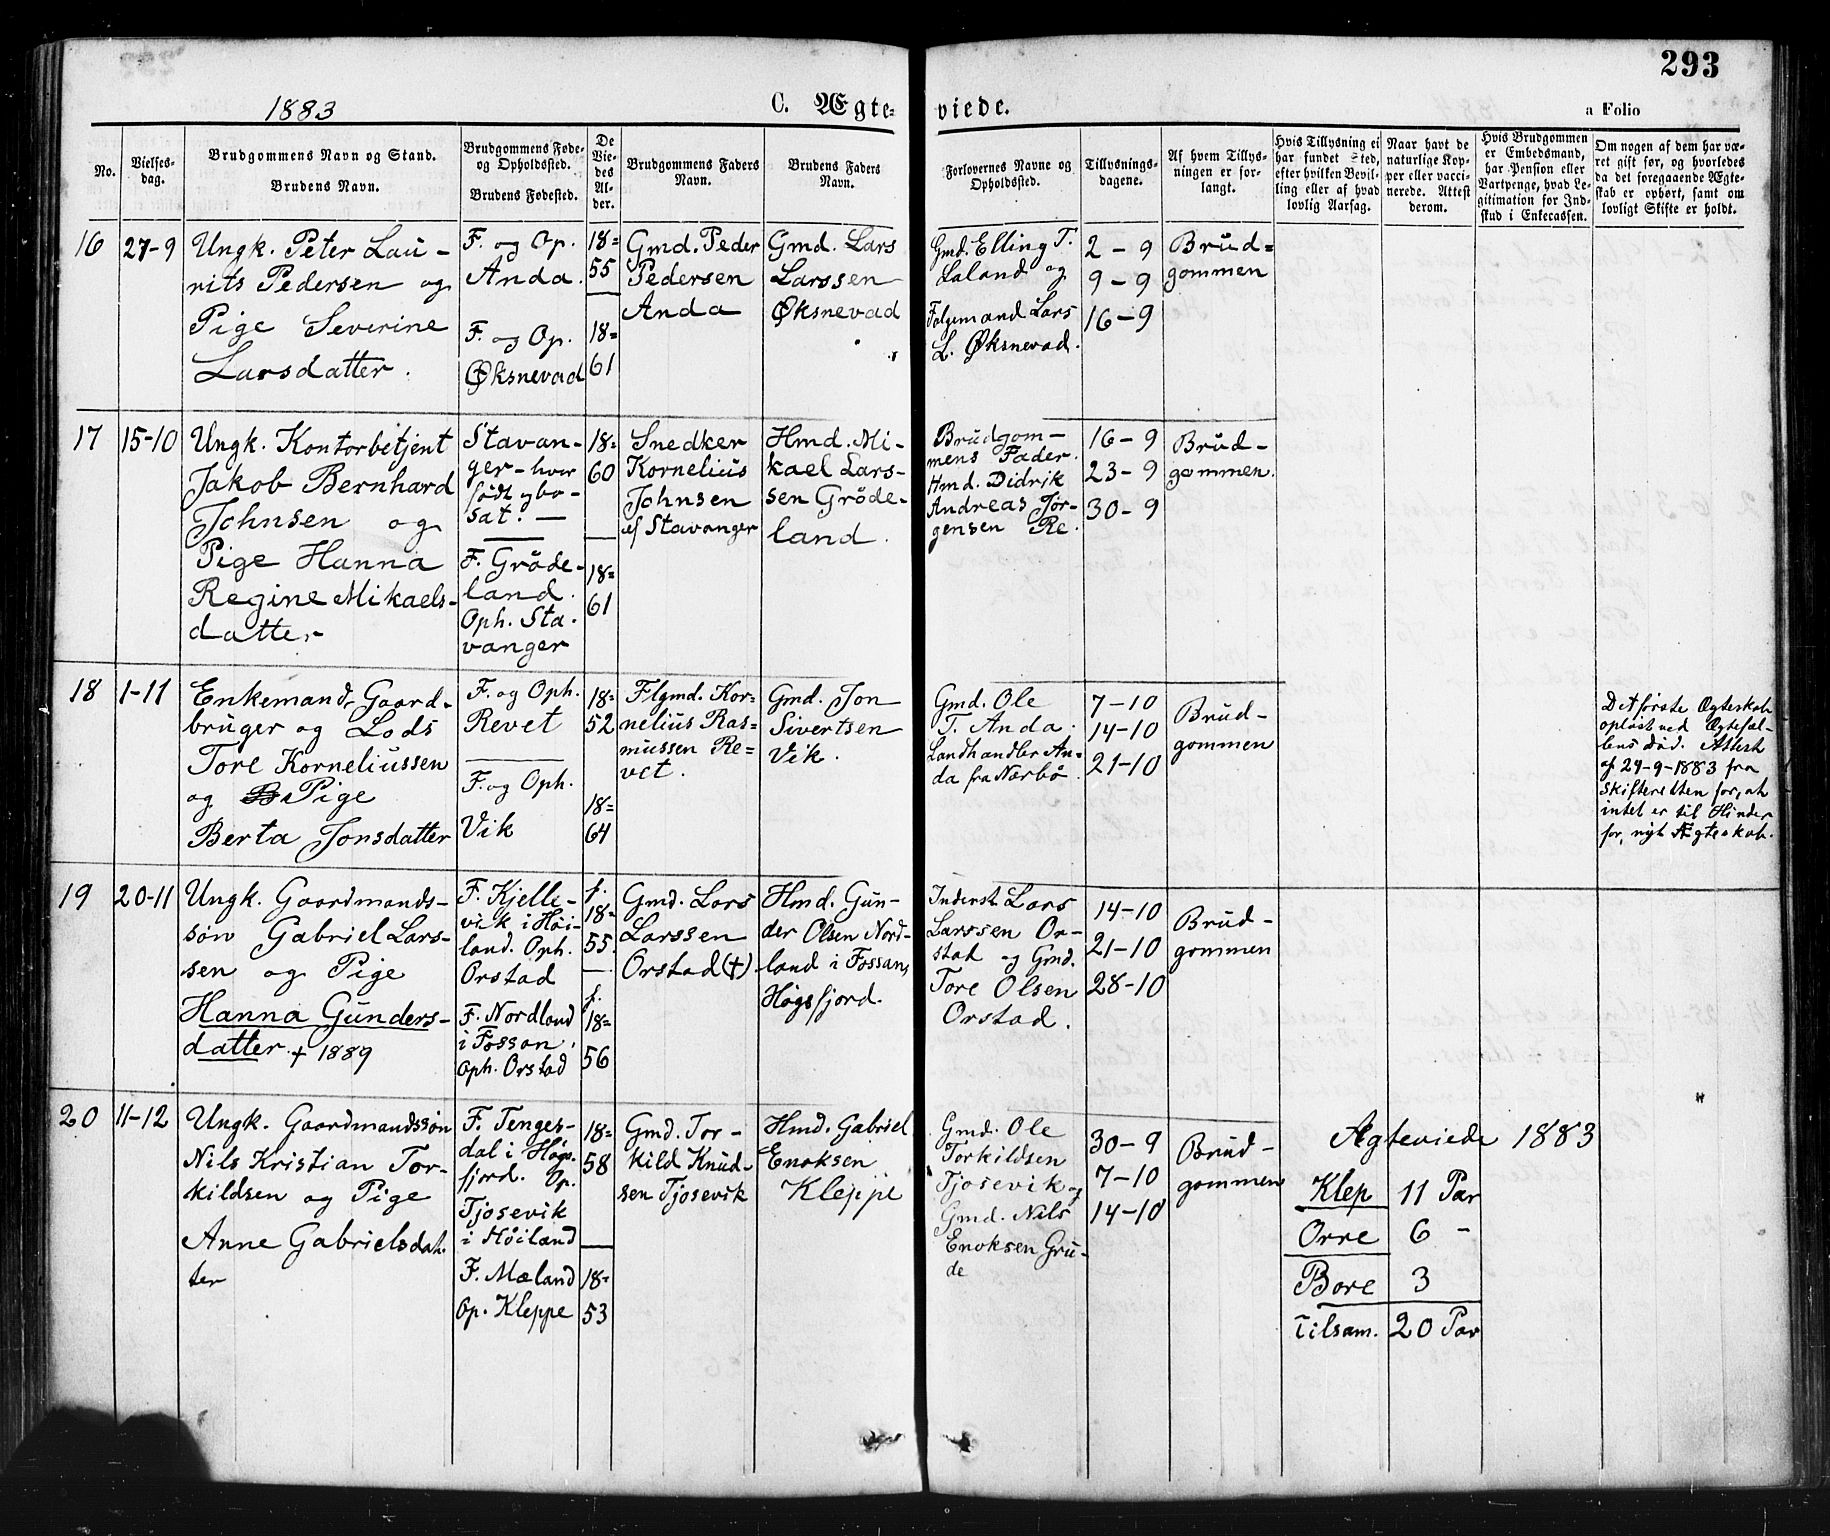 293
1883
C. Ægte-
viede.
a Folio
No.
Vielses-
dag.
Brudgommens Navn og Stand.
Brudens Navn.
Brudgommens Føde-
og Opholdssted.
Brudens Fødested.
De
Vie-
des
Al-
der.
Brudgommens Faders
Navn.
Brudens Faders
Navn.
Forlovernes Navne og
Opholdssted.
Tillysnings-
dagene.
Af hvem Tillys-
ningen er for-
langt.
Hvis Tillysning ei
har fundet Sted,
efter hvilken Bevil-
ling eller af hvad
lovlig Aarsag.
Naar havt de
naturlige Kop-
per eller vacci-
nerede. Attest
derom.
Hvis Brudgommen
er Embedsmand,
har Pension eller
Vartpenge, hvad Le-
gitimation for Ind-
skud i Enkecassen.
Om nogen af dem har væ-
ret gift før, og hvorledes
da det foregaaende Ægte-
skab er ophørt, samt om
lovligt Skifte er holdt.
16
27-9
Ungk. Peter Lau-
rits Pedersen og
Pige Severine
Larsdatter.
F. og Op.
Anda.
F. og Op.
Øksnevad
18=
55
18=
61
Gmd. Peder
Pedersen
Anda
Gmd. Lars
Larssen
Øksnevad
Gmd. Elling T.
Laland og
Folgemand Lars
L. Øksnevad.
2-9
9-9
16-9
Brud=
gommen
17
15-10
Ungk. Kontorbetjent
Jakob Bernhard
Johnsen og
Pige Hanna
Regine Mikaels-
datter
Stavan-
ger - hvor
født og bo-
sat. -
F. Gröde-
land.
Oph. Sta-
vanger
18=
60
18=
61
Snedker
Kornelius
Johnsen
af Stavanger
Hmd. Mi-
kael Lars-
sen Gröde-
land.
Brudgom-
mens Fader.
Hmd. Didrik
Andreas Jør-
gensen Re.
16-9
23-9
30-9
Brud-
gommen.
18
1-11
Enkemand, Gaard-
bruger og Lods
Tore Korneliussen
og Pige
Berta Jonsdatter
F. og Oph.
Revet
F. og Oph.
Vik
18=
52
18=
64
Flgmd. Kor-
nelius Ras-
mussen Re-
vet.
Gmd. Jon
Sivertsen
Vik.
Gmd. Ole
T. Anda,
Landhandler An-
da fra Nærbö.
7-10
14-10
21-10
Brud-
gommen
Det første Ægteskab
opløst ved Ægtefæl-
lens Død. Attest
af 29-9-1883 fra
Skifteretten for, at
intet er til Hinder
for, nyt Ægteskab.
19
20-11
Ungk. Gaardmands-
søn Gabriel Lars-
sen og Pige
Hanna Gunders-
datter. + 1889
F. Kjelle-
vik i Höi-
land. Oph.
Orstad
F. Nordland
i Fossan.
Oph. Orstad
f.
18=
55
f.
18=
56
Gmd. Lars
Larssen
Orstad (+).
Hmd. Gun-
der Olsen Nord-
land i Fossan,
Høgsfjord.
Inderst Lars
Larssen Or-
stad og Gmd.
Tore Olsen
Orstad.
14-10
21-10
28-10
Brud-
gommen
20
11-12
Ungk. Gaardmandssøn
Nils Kristian Tor-
kildsen og Pige
Anne Gabrielsdat-
ter
F. Tenges-
dal i Høgs-
fjord. Op.
Tjosevik
i Höiland
F. Mæland
Op. Kleppe
18=
58
18=
53
Gmd. Tor-
kild Knud-
sen Tjosevik
Hmd. Gabriel
Enoksen
Kleppe
Gmd. Ole
Torkildsen
Tjosevik og
Gmd. Nils
Enoksen Gru-
de
30-9
7-10
14-10
Brud-
gommen
Ægteviede 1883
Klep 11 Par
Orre 6 -
Bore 3
Tilsam. 20 Par